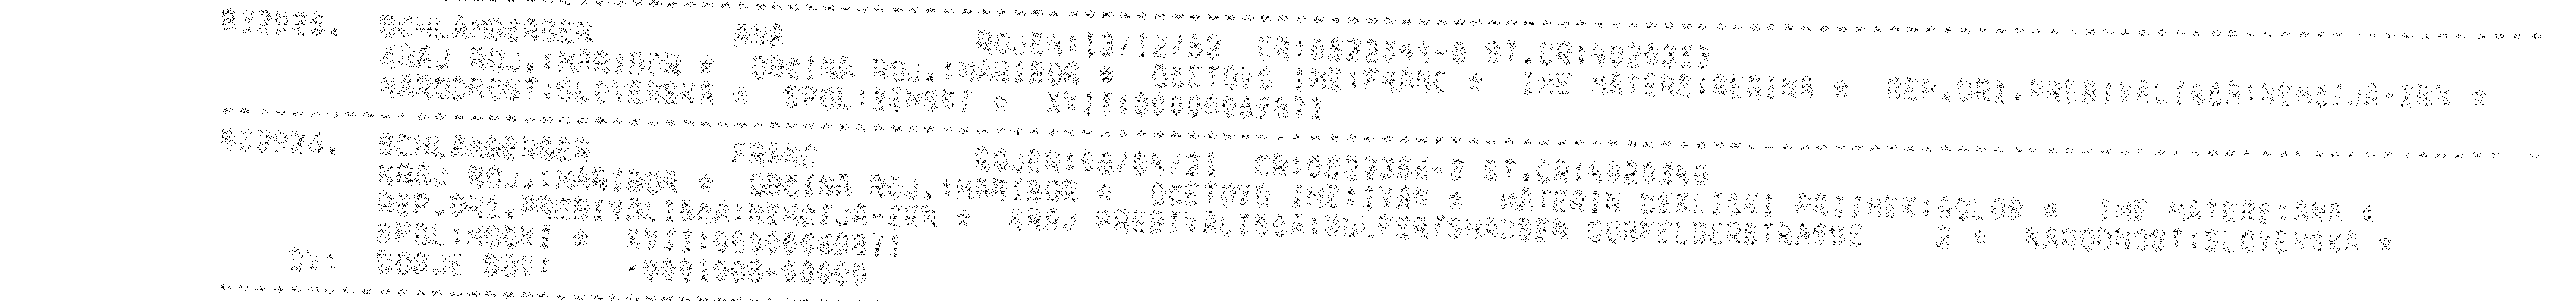 832925. SCHLAMBERGER ANA ROJEN:13/12/52 CR:0522344-0 ST.CR:4020333
KRAJ ROJ.:MARIBOR * OBCINA ROJ.:MARIBOR * OCETOVO IME:FRANC * IME MATERE:REGINA * REP.DRZ.PREBIVALISCA:NEMCIJA-ZRN *
NARODNOST:SLOVENSKA * SPOL:ZENSKI * XVII:00000069871
832926. SCHLAMBERGER FRANC ROJEN:06/04/21 CR:0522356-3 ST.CR:4020340
KRAJ ROJ.:MARIBOR * OBCINA ROJ.:MARIBOR * OCETOVO IME:IVAN * MATERIN DEKLISKI PRIIMEK:GOLOB * IME MATERE:ANA *
REP.DRZ.PREBIVALISCA:NEMCIJA-ZRN * KRAJ PREBIVALISCA:WULPERTSHAUSEN DORFELDERSTRASSE 2 * NARODNOST:SLOVENSKA *
SPOL:MOSKI * XVII:00000069871
DV: DOSJE SDV: -0001008-00060